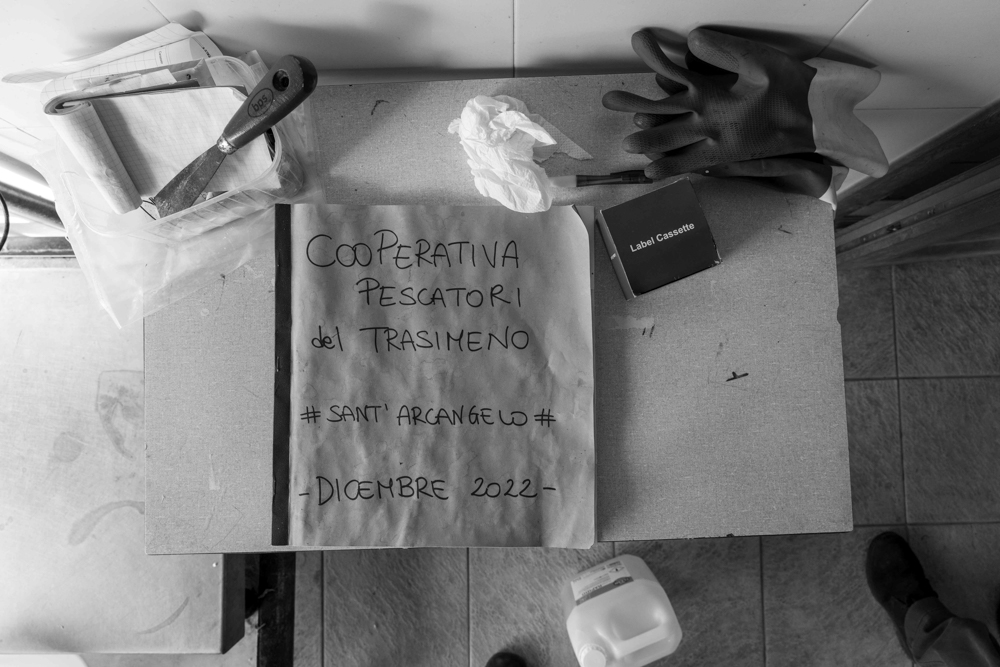 bos
Label Cassette
COOPERATIVA
PESCATORI
del TRASIMENO
# SANT' ARCANGELO #
- DICEMBRE 2022 -